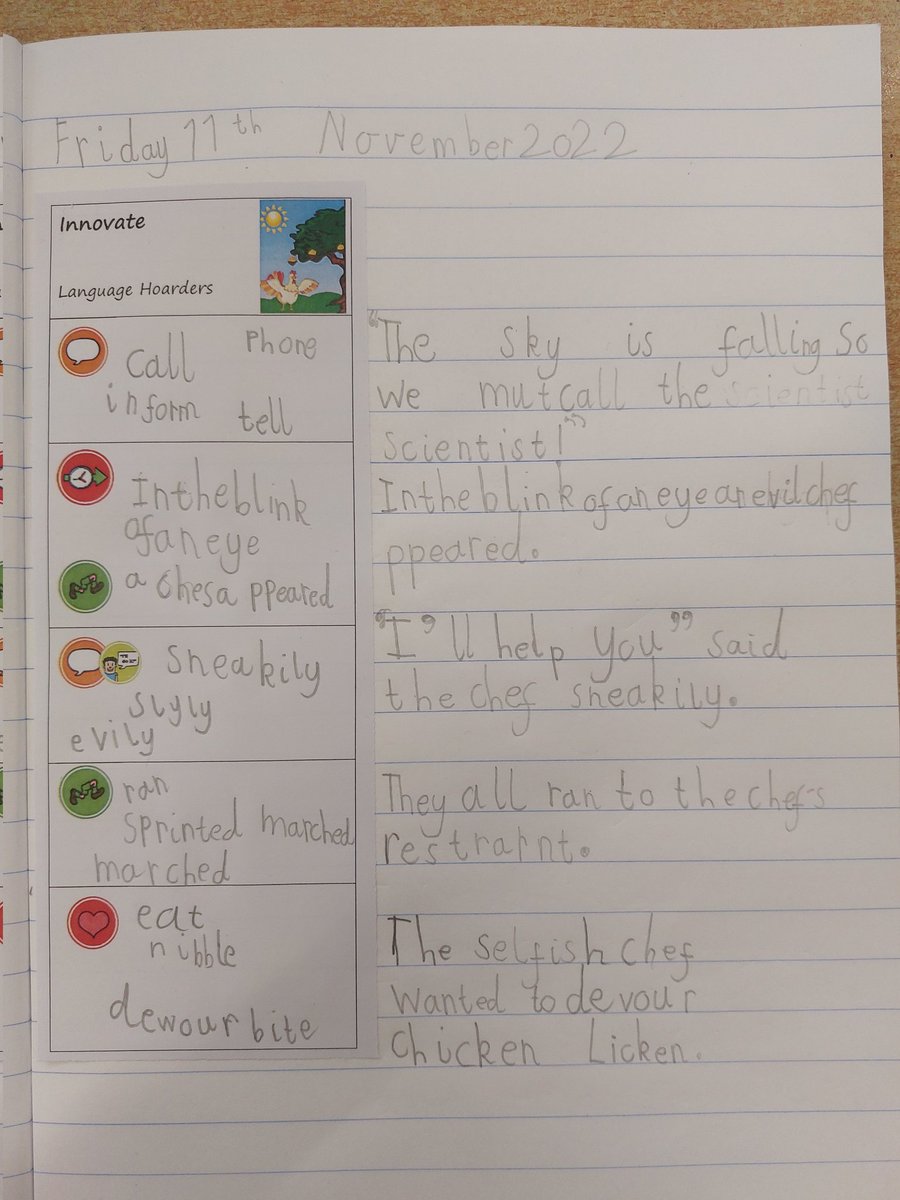 Friday 11th November 2022
Innovate
Language Hoarders
call phone
inform tell
Intheblink
ofaneye
a Chesa ppeared
Sneakily
slyly
evily
ran
sprinted marched
marched
eat
nibble
dewour bite
"The sky is falling So
we mutcall the scientist
scientist!"
Intheblinkofaneyeanevilchef
ppeared.
"I'll help you" said
the chef sneakily.
They all ran to the chef's
restrarnt.
The selfish chef
wanted to devour
Chicken Licken.